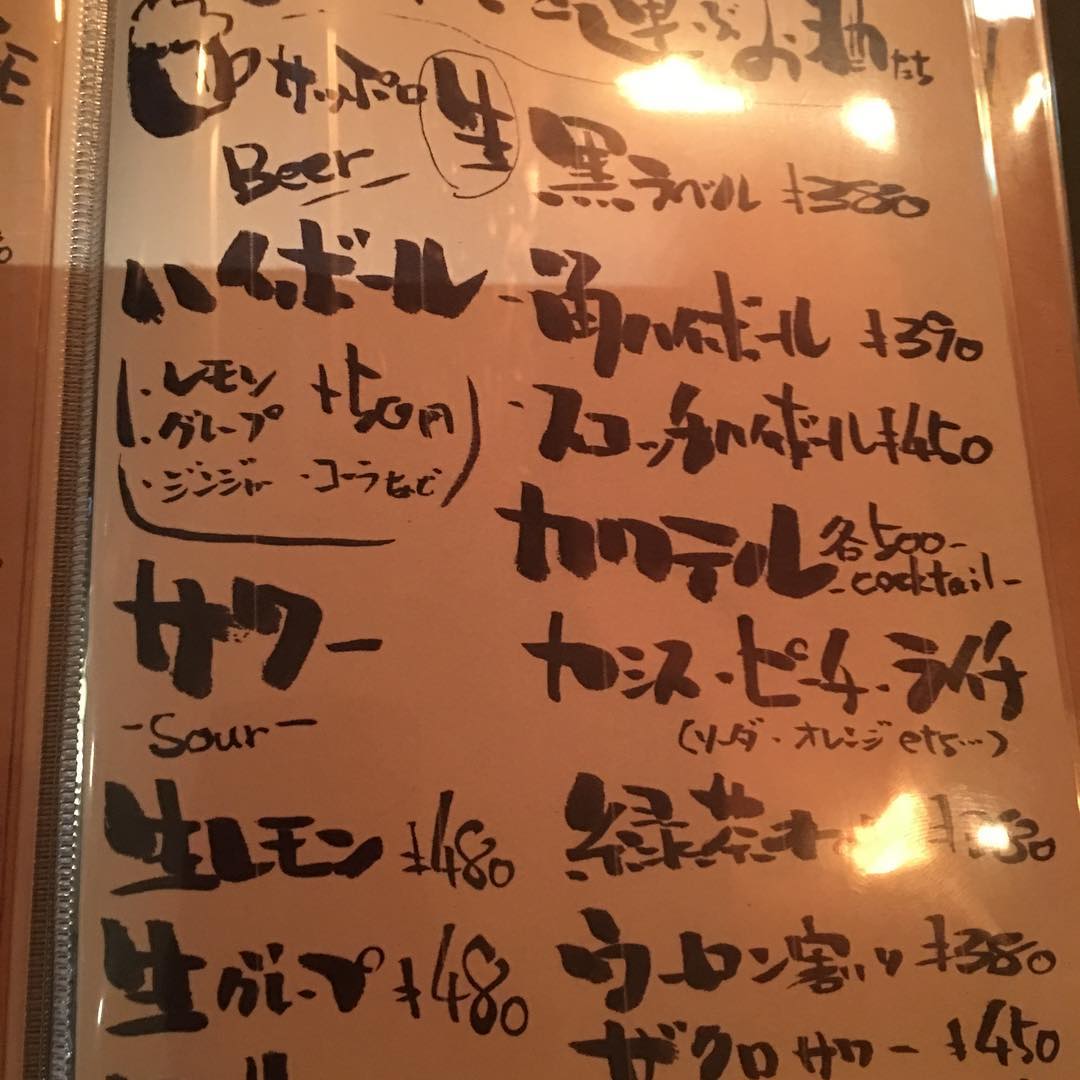 運ぶお酒たち
サッポロ 生 黒ラベル ¥380
Beer
ハイボール
・角ハイボール ¥390
・スコッチハイボール ¥450
・レモン
・グレープ +50円
・ジンジャー ・コーラなど
カクテル 各500-
-cocktail-
カシス・ピーチ・ライチ
(ソーダ・オレンジ etc…)
サワー
-Sour-
生レモン ¥480
生グレープ ¥480
緑茶
ウーロン割り ¥380
ザクロサワー ¥450